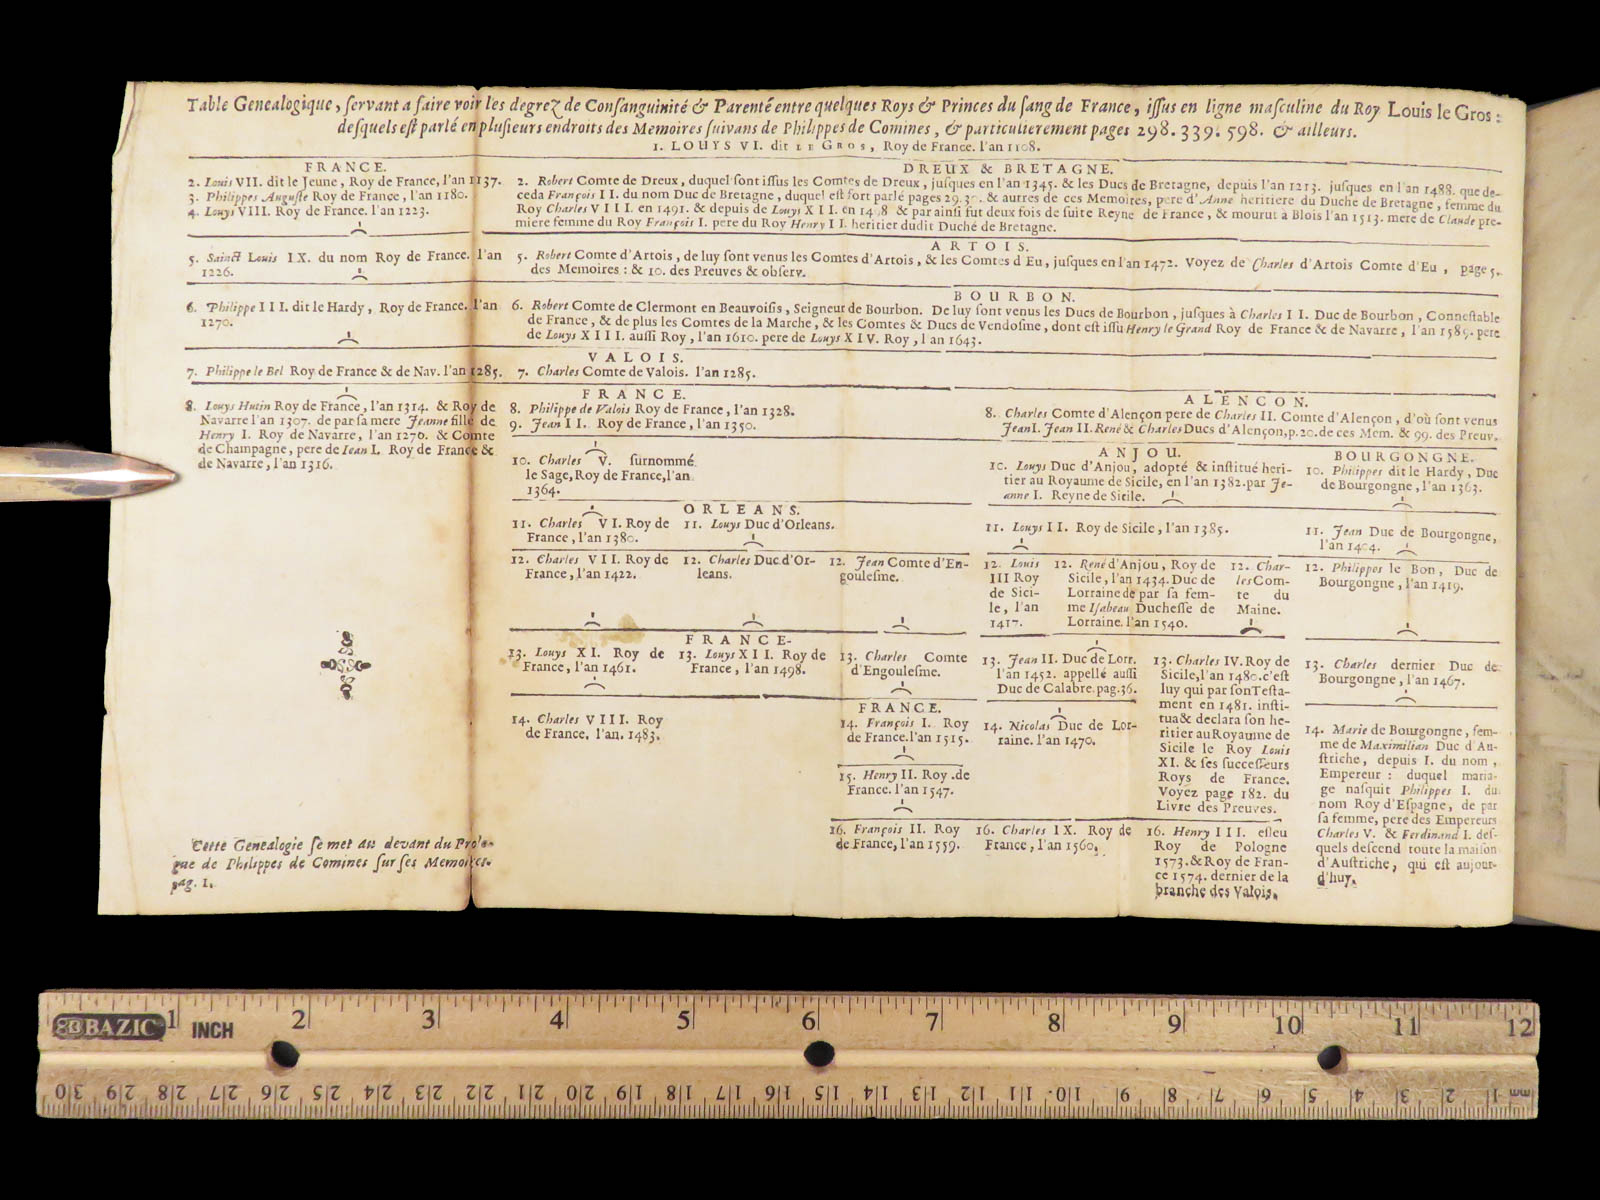 Table Genealogique, ſervant a faire voir les degrez de Conſanguinité & Parenté entre quelques Roys & Princes du ſang de France, iſſus en ligne maſculine du Roy Louis le Gros:
deſquels eſt parlé en pluſieurs endroits des Memoires ſuivans de Philippes de Comines, & particulierement pages 298. 339. 598. & ailleurs.
1. LOUYS VI. dit LE GROS, Roy de France. l'an 1108.
FRANCE.
2. Louis VII. dit le Jeune, Roy de France, l'an 1137.
3. Philippes Auguſte Roy de France, l'an 1180.
4. Louys VIII. Roy de France. l'an 1223.
DREUX & BRETAGNE.
2. Robert Comte de Dreux, duquel ſont iſſus les Comtes de Dreux, juſques en l'an 1345. & les Ducs de Bretagne, depuis l'an 1213. juſques en l'an 1488. que de-
ceda François II. du nom Duc de Bretagne, duquel eſt fort parlé pages 29. 30. & autres de ces Memoires, pere d'Anne heritiere du Duché de Bretagne, femme du
Roy Charles VIII. en 1491. & depuis de Louys XII. en 1498 & par ainſi fut deux fois de ſuite Reyne de France, & mourut à Blois l'an 1513. mere de Claude pre-
miere femme du Roy François I. pere du Roy Henry II. heritier dudit Duché de Bretagne.
5. Sainct Louis IX. du nom Roy de France. l'an
1226.
ARTOIS.
5. Robert Comte d'Artois, de luy ſont venus les Comtes d'Artois, & les Comtes d'Eu, juſques en l'an 1472. Voyez de Charles d'Artois Comte d'Eu, page 5.
des Memoires: & 10. des Preuves & obſerv.
6. Philippe III. dit le Hardy, Roy de France. l'an
1270.
BOURBON.
6. Robert Comte de Clermont en Beauvoiſis, Seigneur de Bourbon. De luy ſont venus les Ducs de Bourbon, juſques à Charles II. Duc de Bourbon, Conneſtable
de France, & de plus les Comtes de la Marche, & les Comtes & Ducs de Vendoſme, dont eſt iſſu Henry le Grand Roy de France & de Navarre, l'an 1589. pere
de Louys XIII. auſſi Roy, l'an 1610. pere de Louys XIV. Roy, l'an 1643.
7. Philippe le Bel Roy de France & de Nav. l'an 1285.
VALOIS.
7. Charles Comte de Valois. l'an 1285.
8. Louys Hutin Roy de France, l'an 1314. & Roy de
Navarre l'an 1307. de par ſa mere Jeanne fille de
Henry I. Roy de Navarre, l'an 1270. & Comte
de Champagne, pere de Iean I. Roy de France &
de Navarre, l'an 1316.
FRANCE.
8. Philippe de Valois Roy de France, l'an 1328.
9. Jean II. Roy de France, l'an 1350.
ALENCON.
8. Charles Comte d'Alençon pere de Charles II. Comte d'Alençon, d'où ſont venus
Jean I. Jean II. René & Charles Ducs d'Alençon, p. 20. de ces Mem. & 99. des Preuv.
10. Charles V. ſurnommé
le Sage, Roy de France, l'an
1364.
ANJOU.
10. Louys Duc d'Anjou, adopté & inſtitué heri-
tier au Royaume de Sicile, en l'an 1382. par Je-
anne I. Reyne de Sicile.
BOURGONGNE.
10. Philippes dit le Hardy, Duc
de Bourgongne, l'an 1363.
11. Charles VI. Roy de
France, l'an 1380.
ORLEANS.
11. Louys Duc d'Orleans.
11. Louys II. Roy de Sicile, l'an 1385.
11. Jean Duc de Bourgongne,
l'an 1404.
12. Charles VII. Roy de
France, l'an 1422.
12. Charles Duc d'Or-
leans.
12. Jean Comte d'En-
gouleſme.
12. Louis
III Roy
de Sici-
le, l'an
1417.
12. René d'Anjou, Roy de
Sicile, l'an 1434. Duc de
Lorraine de par ſa fem-
me Iſabeau Ducheſſe de
Lorraine. l'an 1540.
12. Char-
les Com-
te du
Maine.
12. Philippes le Bon, Duc de
Bourgongne, l'an 1419.
13. Louys XI. Roy de
France, l'an 1461.
FRANCE.
13. Louys XII. Roy de
France, l'an 1498.
13. Charles Comte
d'Engouleſme.
13. Jean II. Duc de Lorr.
l'an 1452. appellé auſſi
Duc de Calabre. pag. 36.
13. Charles IV. Roy de
Sicile, l'an 1480. c'eſt
luy qui par ſon Teſta-
ment en 1481. inſti-
tua & declara ſon he-
ritier au Royaume de
Sicile le Roy Louis
XI. & ſes ſucceſſeurs
Roys de France.
Voyez page 182. du
Livre des Preuves.
13. Charles dernier Duc de
Bourgongne, l'an 1467.
14. Charles VIII. Roy
de France. l'an. 1483.
FRANCE.
14. François I. Roy
de France. l'an 1515.
14. Nicolas Duc de Lor-
raine. l'an 1470.
14. Marie de Bourgongne, fem-
me de Maximilian Duc d'Au-
ſtriche, depuis I. du nom,
Empereur: duquel maria-
ge naſquit Philippes I. du
nom Roy d'Eſpagne, de par
ſa femme, pere des Empereurs
Charles V. & Ferdinand I. deſ-
quels deſcend toute la maiſon
d'Auſtriche, qui eſt aujour-
d'huy.
15. Henry II. Roy de
France. l'an 1547.
16. François II. Roy
de France, l'an 1559.
16. Charles IX. Roy de
France, l'an 1560.
16. Henry III. eſleu
Roy de Pologne
1573. & Roy de Fran-
ce 1574. dernier de la
branche des Valois.
Cette Genealogie ſe met au devant du Prolo-
gue de Philippes de Comines ſur ſes Memoires.
pag. 1.
BAZIC 1 INCH 2 3 4 5 6 7 8 9 10 11 12
30 29 28 27 26 25 24 23 22 21 20 19 18 17 16 15 14 13 12 11 10 9 8 7 6 5 4 3 2 1 mm